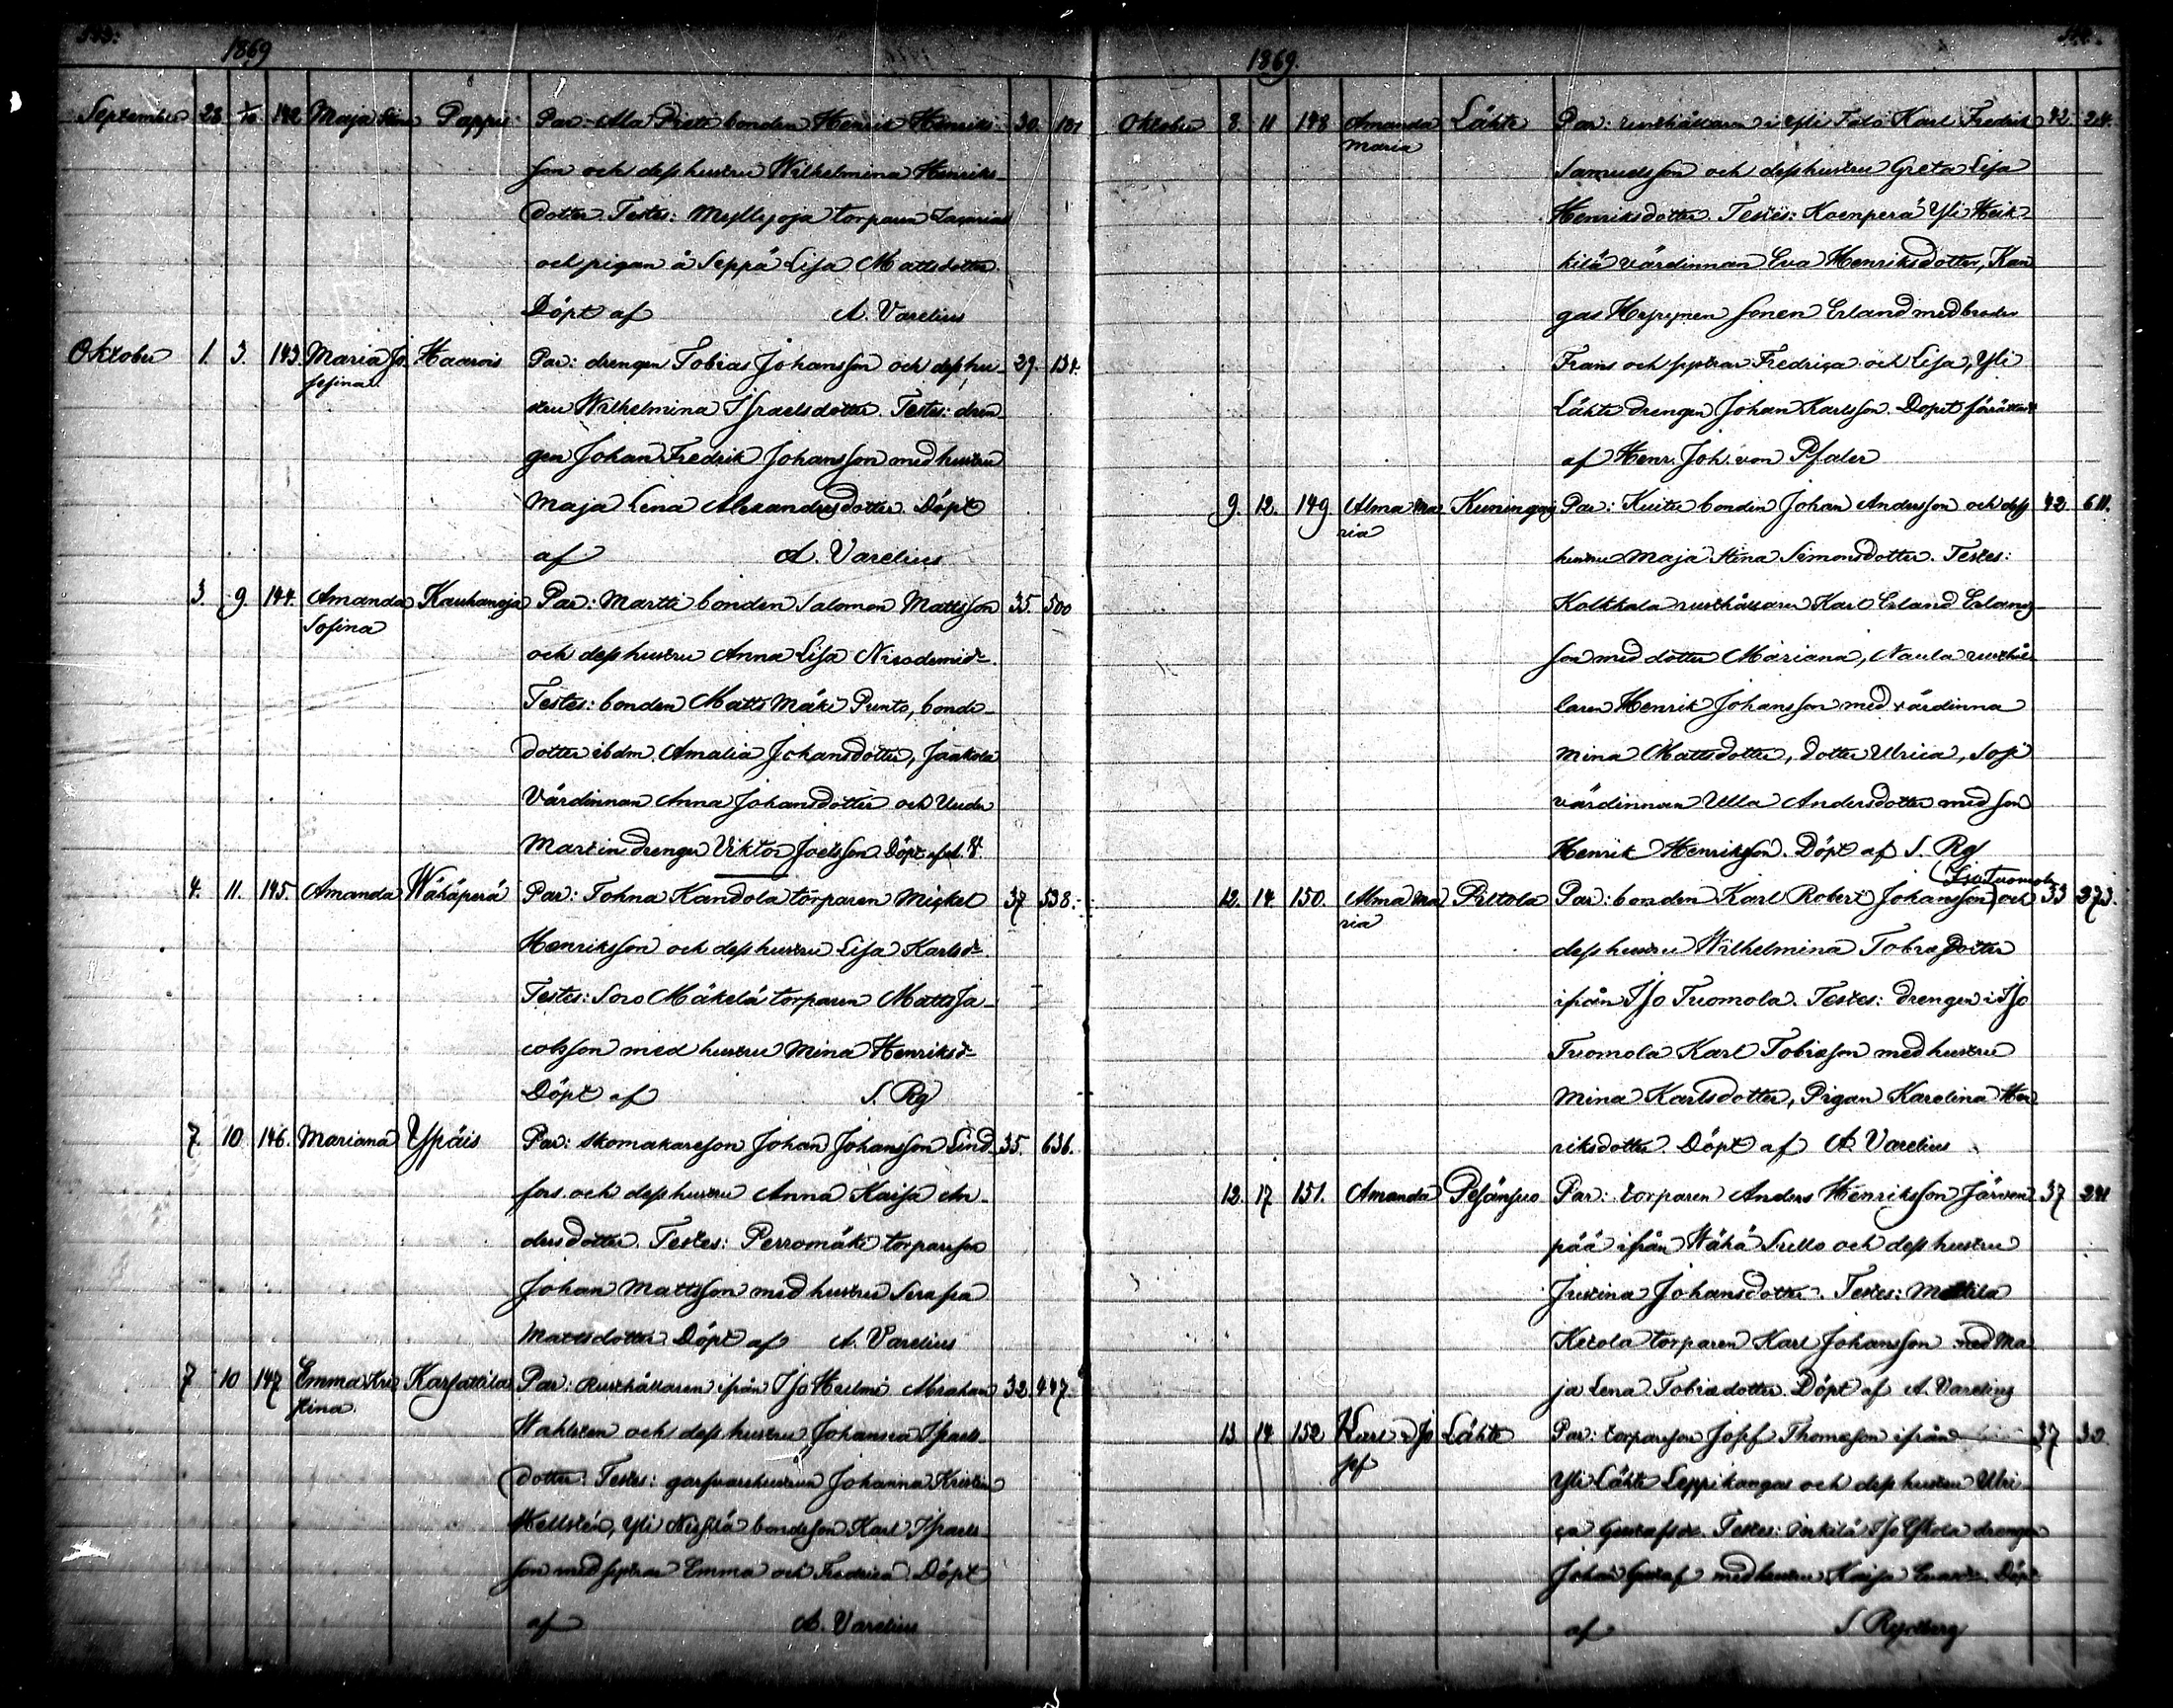 1869
September 28 1/10 142 Maja Stina Pappis Par: Ala Pietibonden Henrik Henriks- 30. 101
son och dess hustru Wilhelmina Henriks-
dotter. Testes: Myllyoja torparen
och pigan å Seppä Lisa Mattsdotter.
Döpt af A. Varelius
Oktober 1. 3. 143. Maria Jo Haarois Par: drengen Tobias Johansson och dess hu- 29. 134.
sefina stru Wilhelmina Israelsdotter. Testes: dren-
gen Johan Fredrik Johansson med hustru
Maja Lena Alexandersdotter. Döpt
af A. Varelius
3. 9. 144. Amanda Kauhanoja Par: Martti bonden Salomon Mattsson 35. 500
Sofina
och dess hustru Anna Lisa Nicodemid-
Testes: bonden Matts Mäki Punto, bonde-
dotter ibdm. Amalia Johansdotter, Jaakola
värdinnan Anna Johansdotter och
Martin drenge Viktor Joelsson. Döpt af A. V.
4. 11. 145. Amanda Wähäperä Par: Tohna Kandola torparen Mickel 37 538.
Henriksson och dess hustru Lisa Karlsd-
Testes: Soro Mäkelä torparen Matts Ja-
cobsson med hustru Mina Henriksd-
Döpt af S. Rg
7. 10. 146. Mariana Yspäis Par: skomakareson Johan Johansson Lind- 35. 636.
fors och dess hustru Anna Kaisa An-
dersdotter. Testes: Perromäki torpareson
Johan Mattsson med hustru Serafia
Mattsdotter. Döpt af A. Varelius
7 10 147 Emma Kri Karjattila Par: Rusthållaren ifrån Iso Heilmi Abraham 32. 447.
stina
Wahlsten och dess hustru Johanna Israels-
dotter. Testes: garfvarehustrun Johanna Kristin
Hellstén, Yli bondeson Karl Israels-
son med systrar Emma och Fredrica. Döpt
af A. Varelius
1869.
Oktober 8. 11 148 Amanda Lähte Par: rusthållaren i Yli Talo Karl Fredrik 42. 24.
Maria
Samuelsson och dess hustru Greta Lisa
Henriksdotter. Testes: Koenperä Yli Heik-
kilä värdinnan Eva Henriksdotter, Kan
gas Hyypynen sonen Erland med broder
Frans och systrar Fredrica och Lisa, Yli
Lähte drengen Johan Karlsson. Dopet förrättadt
af Henr. Joh. von Pfaler
9. 12. 149 Alma Ma Kuningas Par: Kuitu bonden Johan Andersson och dess 42 611.
ria
hustru Maja Stina Simonsdotter. Testes:
Kolkkala rusthållaren Karl Erland Erlands-
son med dotter Mariana, Naula rusthål-
laren Henrik Johansson med värdinna
Mina Mattsdotter, dotter Ulrica,
värdinnan Ulla Andersdotter med son
Henrik Henriksson. Döpt af S. Rg
Iso Tuomola
12. 14 150. Alma Ma Piltola Par: bonden Karl Robert Johansson och 33 273.
ria
dess hustru Wilhelmina Tobiasdotter
ifrån Iso Tuomola. Testes: drengen i Iso
Tuomola Karl Tobiasson med hustru
Mina Karlsdotter, Pigan Karolina Hen
riksdotter. Döpt af A. Varelius
12. 17 151. Amanda Pesänsuo Par: torparen Anders Henriksson Järven 37 241
pää ifrån Wähä Sullo och dess hustru
Justina Johansdotter. Testes: Mattila
Ketola torparen Karl Johansson med Ma
ja Lena Tobiædotter. Döpt af A. Varelius
13. 14 152 Karl Jo Lähte Par: torpareson Josef Thomasson ifrån 37 30.
sef
Yli Lähte Leppikangas och dess hustru Ulri
ca Gustafsdr. Testes: Iso Yskola drengen
Johan Gustaf med hustru Kaisa Döpt
af S. Rydberg